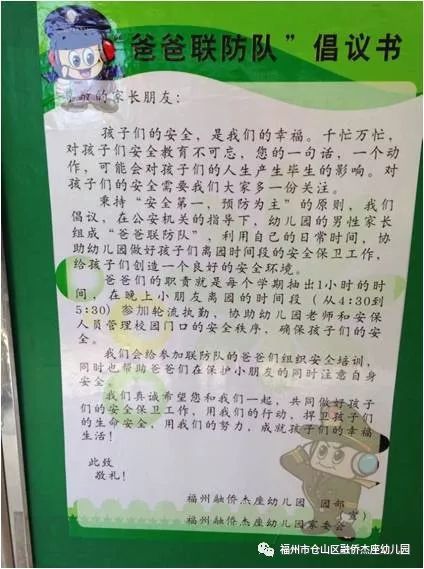 “爸爸联防队”倡议书
的家长朋友：
孩子们的安全，是我们的幸福。千忙万忙，
对孩子们安全教育不可忘，您的一句话，一个动
作，可能会对孩子们的人生产生毕生的影响。对
孩子们的安全需要我们大家多一份关注。
秉持“安全第一、预防为主”的原则，我们
倡议，在公安机关的指导下，幼儿园的男性家长
组成“爸爸联防队”，利用自己的日常时间，协
助幼儿园做好孩子们离园时间段的安全保卫工作，
给孩子们创造一个良好的安全环境。
爸爸们的职责就是每个学期抽出1小时的时
间，在晚上小朋友离园的时间段（从4:30到
5:30）参加轮流执勤，协助幼儿园老师和安保
人员管理校园门口的安全秩序，确保孩子们的安
全。
我们会给参加联防队的爸爸们组织安全培训，
同时也帮助爸爸们在保护小朋友的同时注意自身
安全。
我们真诚希望您和我们一起，共同做好孩子
们的安全保卫工作，用我们的行动，捍卫孩子们
的生命安全，用我们的努力，成就孩子们的幸福
生活！
此致
敬礼！
福州融侨杰座幼儿园 园部
福州融侨杰座幼儿园家委会（宣）
福州市仓山区融侨杰座幼儿园